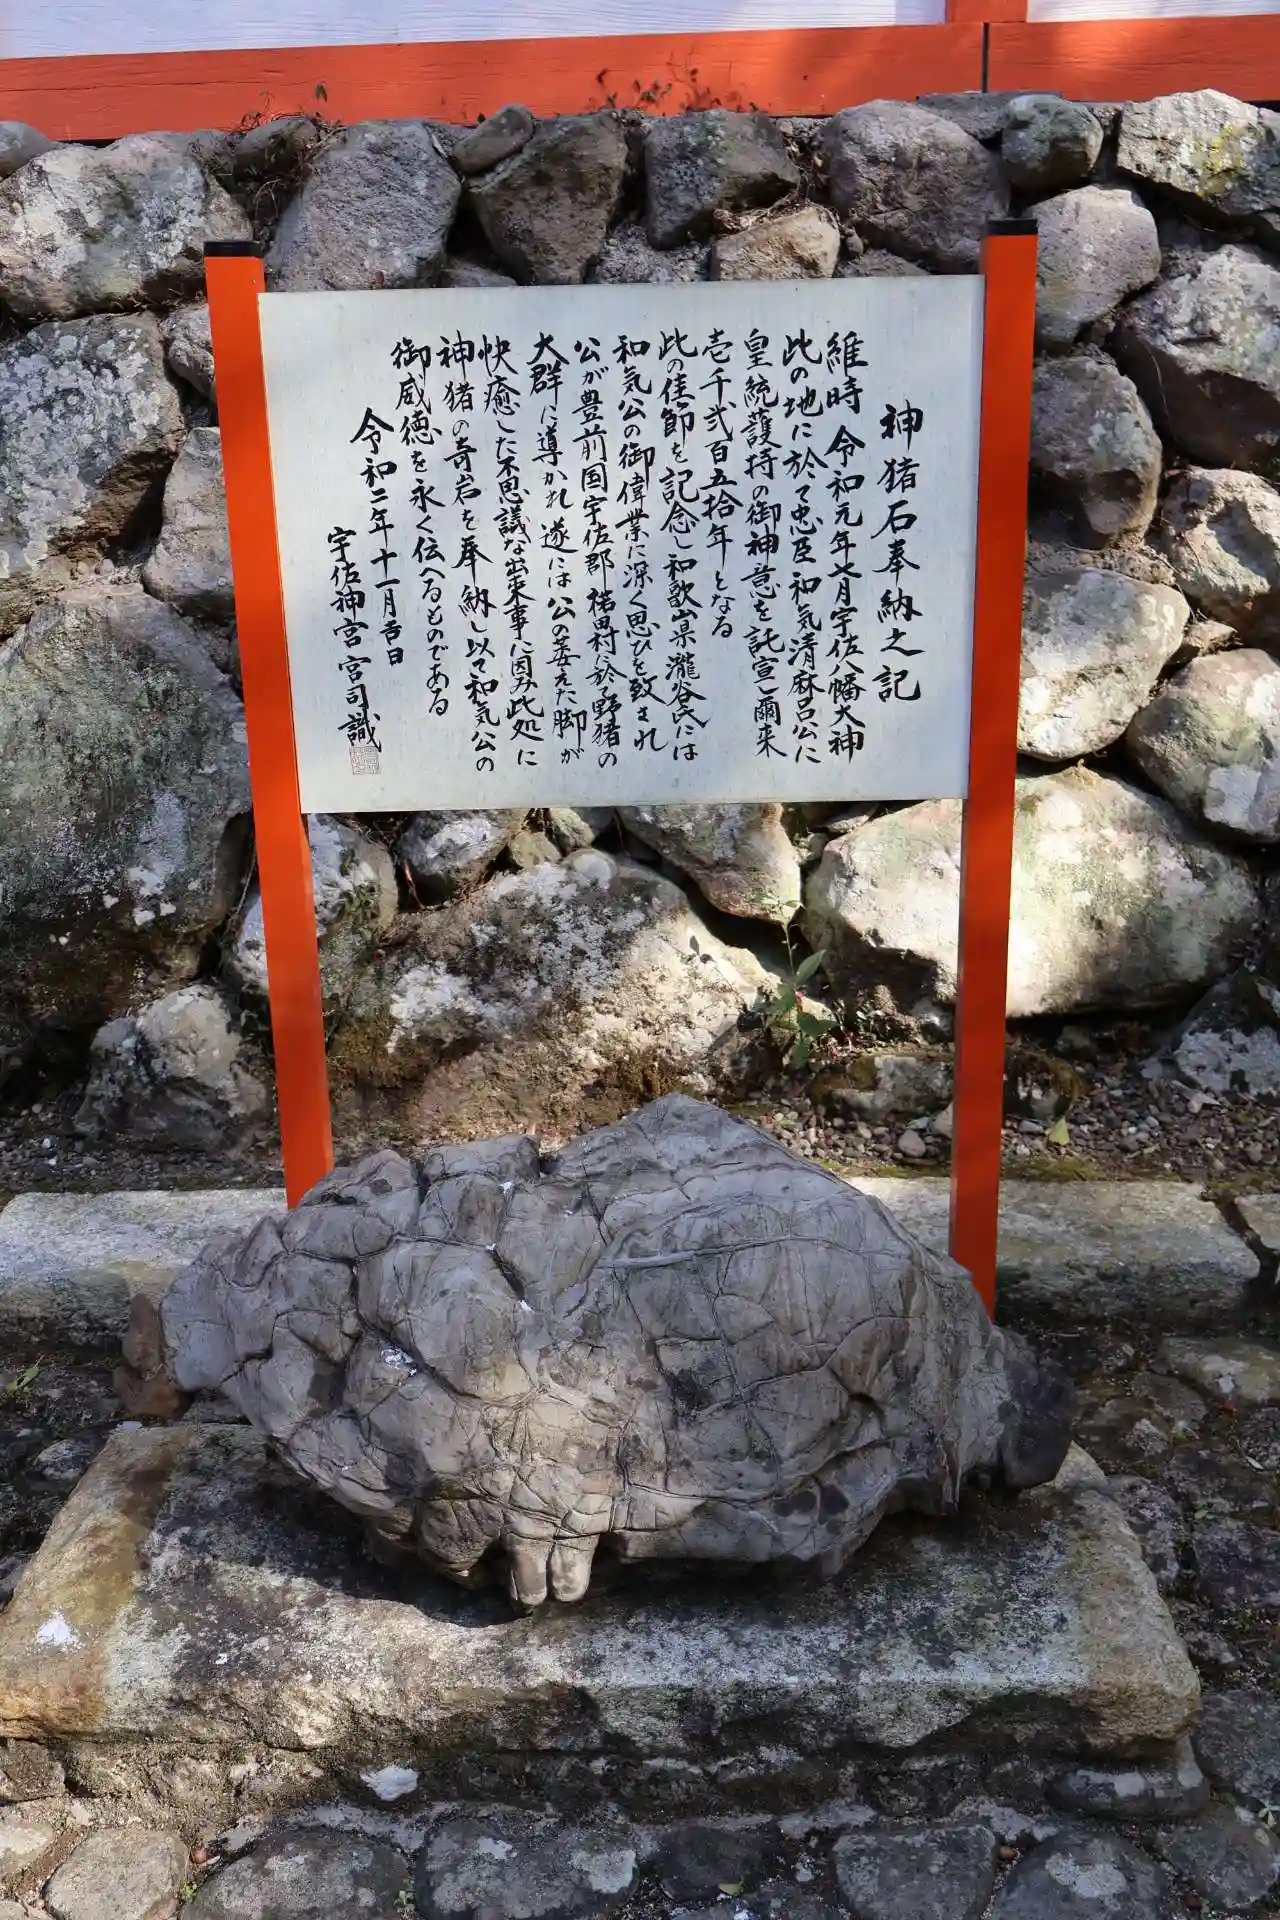 神猪石奉納之記
維時 令和元年七月宇佐八幡大神
此の地に於て忠臣和気清麻呂公に
皇統護持の御神意を託宣し爾来
壱千弐百五拾年となる
此の佳節を記念し和歌山県瀧谷氏には
和気公の御偉業に深く思ひを致され
公が豊前国宇佐郡楉田村に於て野猪の
大群に導かれ遂には公の萎えた脚が
快癒した不思議な出来事に因み此処に
神猪の奇岩を奉納し以て和気公の
御威徳を永く伝へるものである
令和二年十一月吉日
宇佐神宮宮司識